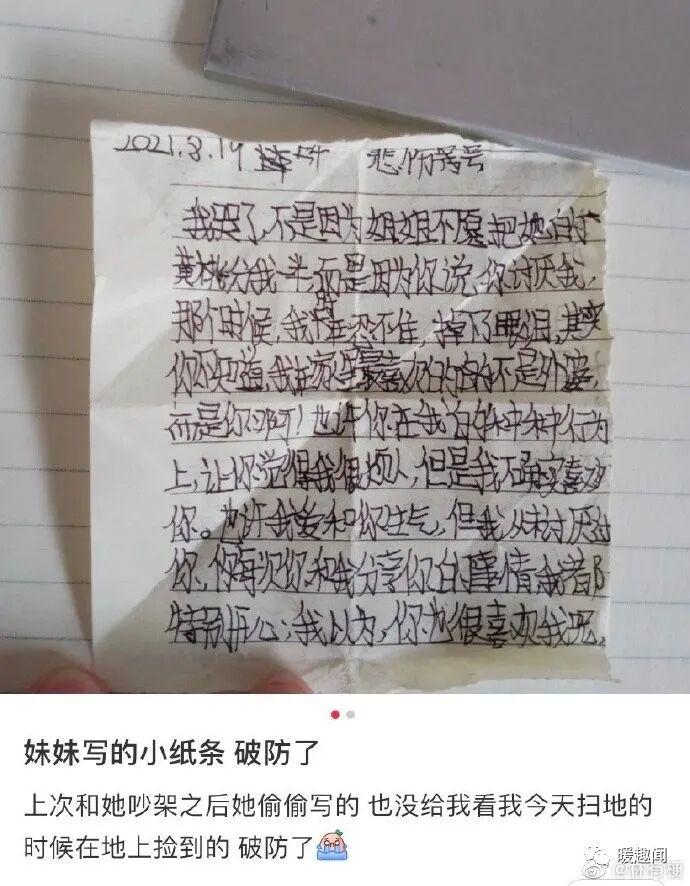 2021.3.19 悲伤
我哭了,不是因为姐姐不愿把她的
黄桃分我一半而是因为你说,你讨厌我,
那个时候,我忍不住,掉下了眼泪,其实
你不知道,我最喜欢的不是外婆
而是你啊!也许你在我的种种行为
上,让你觉得我很烦人,但是我确实喜欢
你。也许我爱和你生气,但我从未讨厌过
你,你每次你和我分享你的事情我都
特别开心;我以为,你也很喜欢我呢。
妹妹写的小纸条 破防了
上次和她吵架之后她偷偷写的 也没给我看我今天扫地的
时候在地上捡到的 破防了
暖趣闻